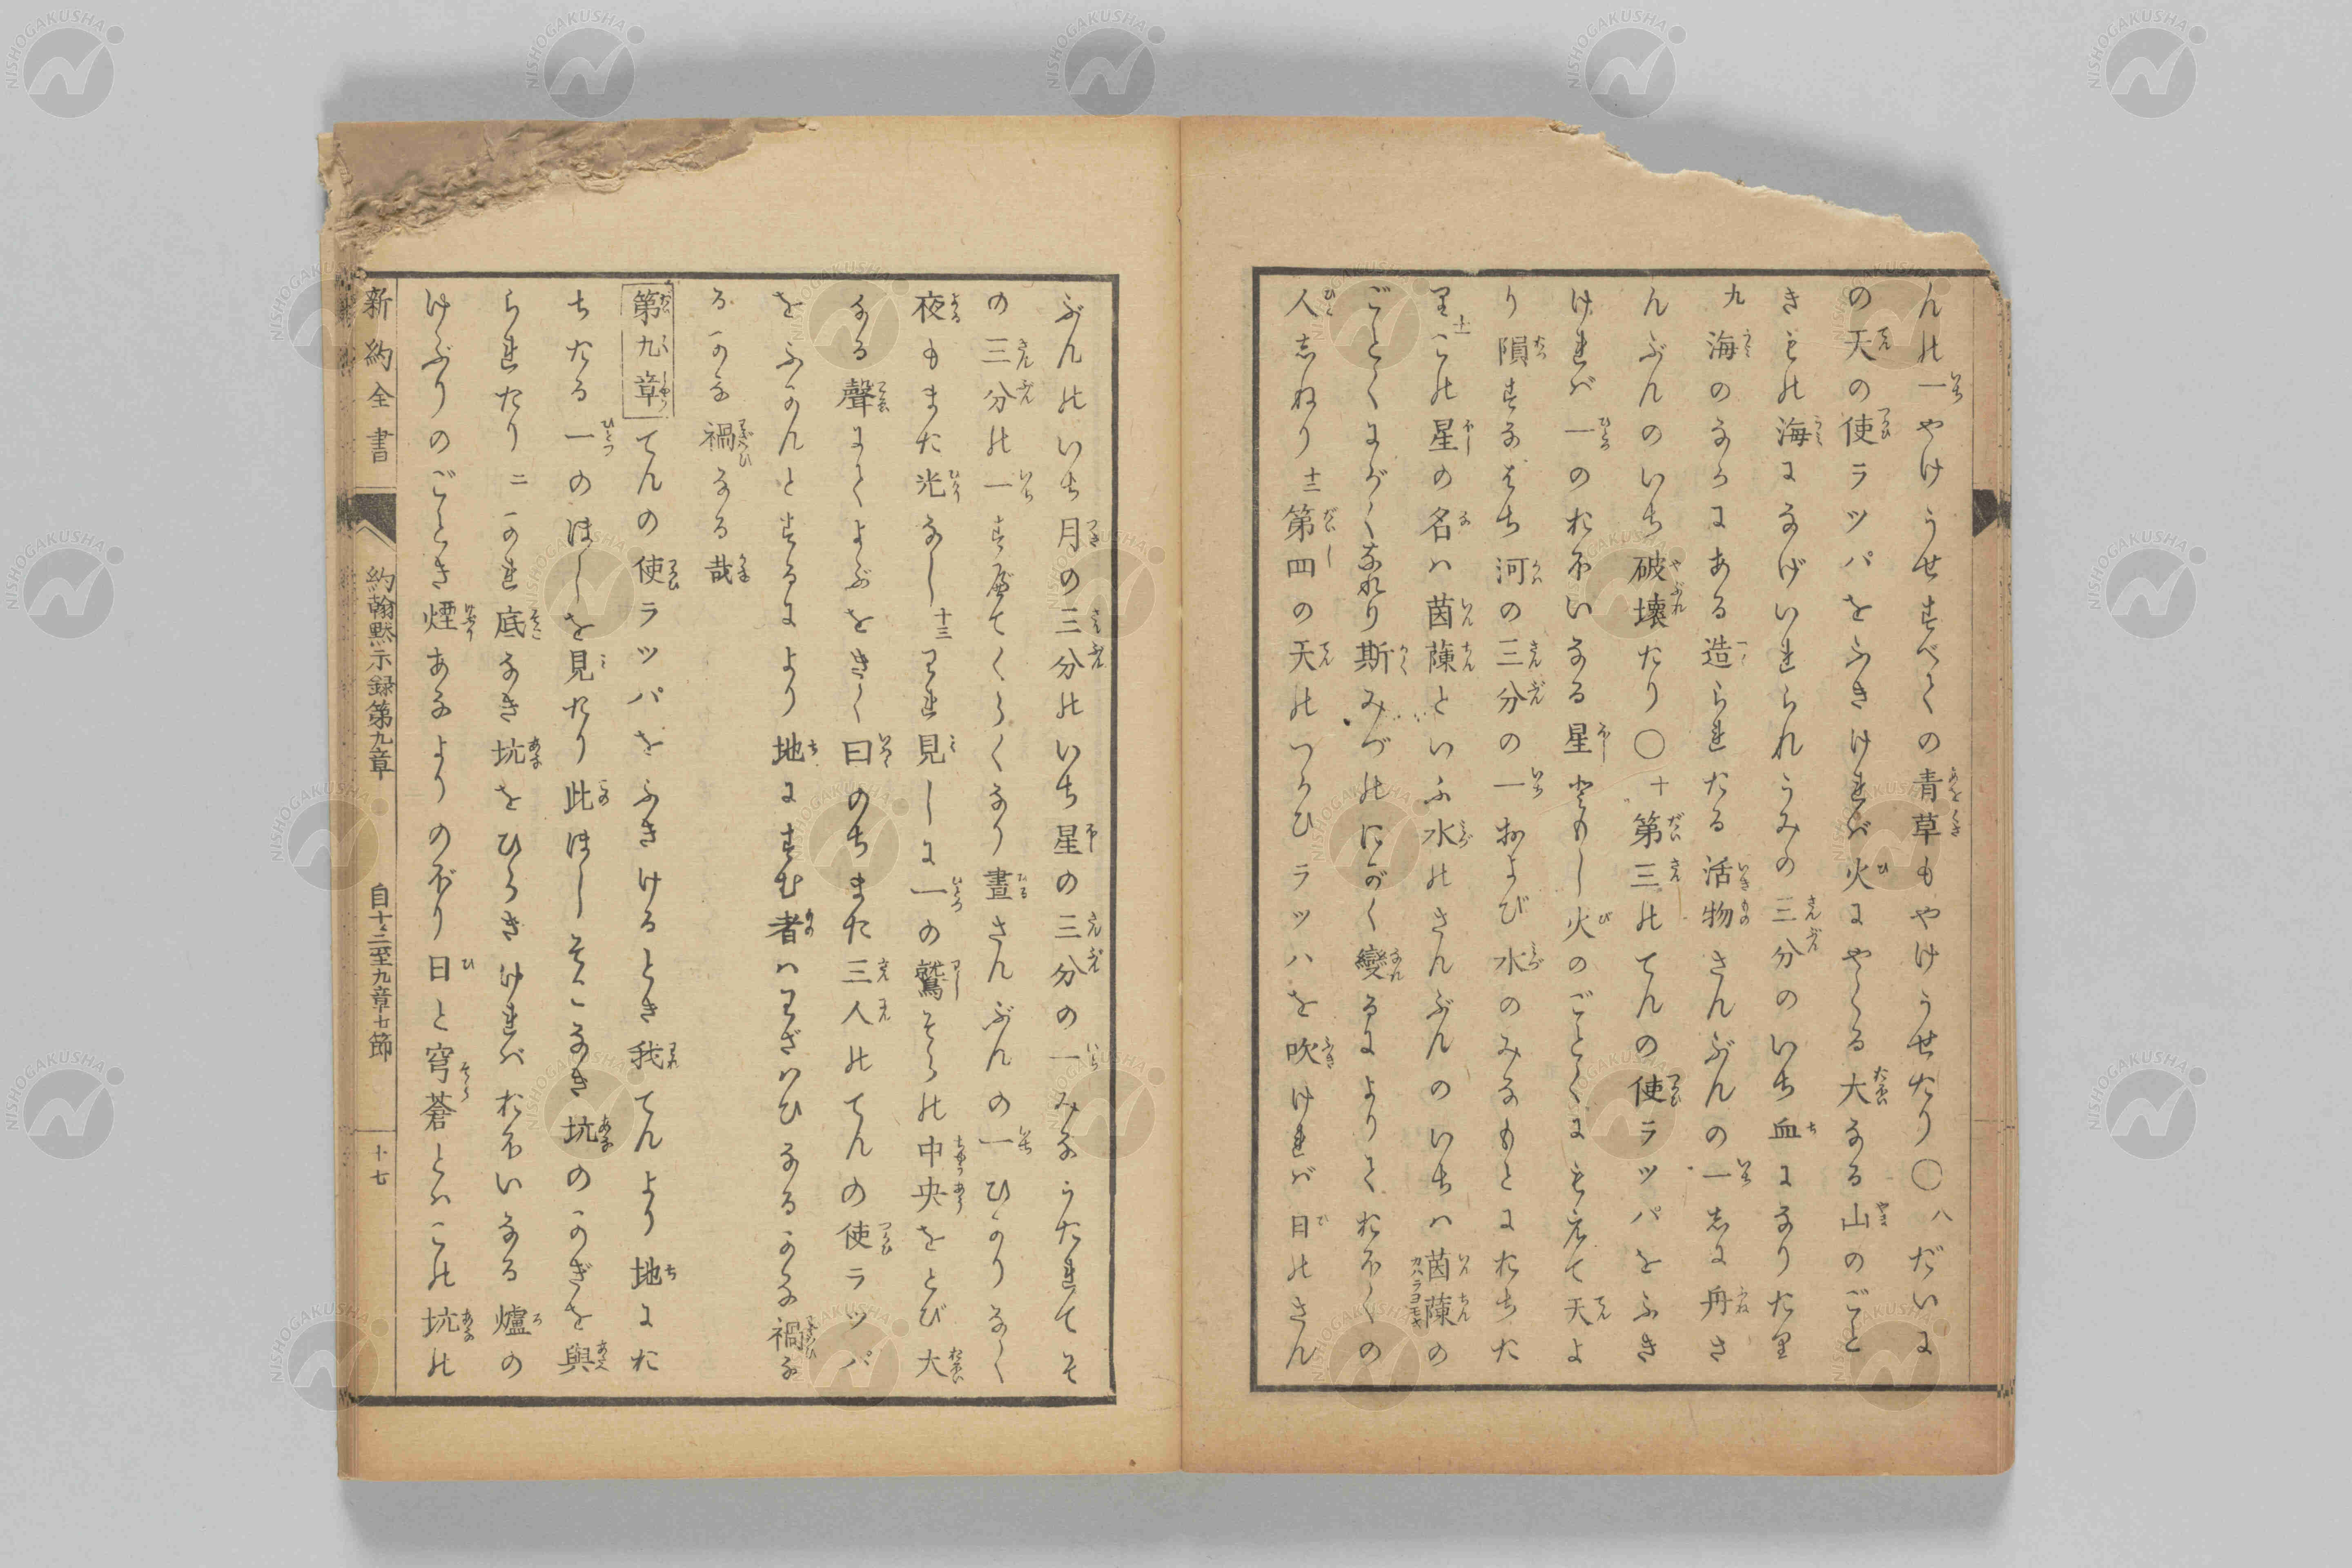 んの一やけうせすべての青草もやけうせたり〇八だいに
の天の使ラッパをふきければ火にやくる大なる山のごと
きもの海になげいれられうみの三分のいち血になりたり
九海のなかにある造られたる活物さんぶんの一しに舟さ
んぶんのいち破壊たり〇十第三のてんの使ラッパをふき
ければ一のおほいなる星ともし火のごとくにもえて天よ
り隕すなはち河の三分の一およびび水のみなもとにおちた
り十一この星の名ハ茵蔯といふ水のさんぶんのいちハ茵蔯の
ごとくにがくなれり斯みづのにがく變るによりておほくの
人しねり十二第四の天のつかひラッハを吹ければ日のさん
ぶんのいち月の三分のいち星の三分の一みなうたれてそ
の三分の一すべてくらくなり晝さんぶんの一ひかりなく
夜もまた光なし十三われ見しに一の鷲そらの中央をとび大
なる聲にてよぶをきく曰のちまた三人のてんの使ラッパ
をふかんとするにより地にすむ者ハわざハひなるかな禍な
るかな禍なる哉
第九章てんの使ラッパをふきけるとき我てんより地にた
ちたる一のほしを見たり此ほしそこなき坑のかぎを與
られたり二かれ底なき坑をひらきければおほいなる爐の
けぶりのごとき煙あなよりのぼり日と穹蒼とハこの坑の
新約全書
約翰黙示録第九章
自十三至九章十七節
十七
NISHOGAKUSHA